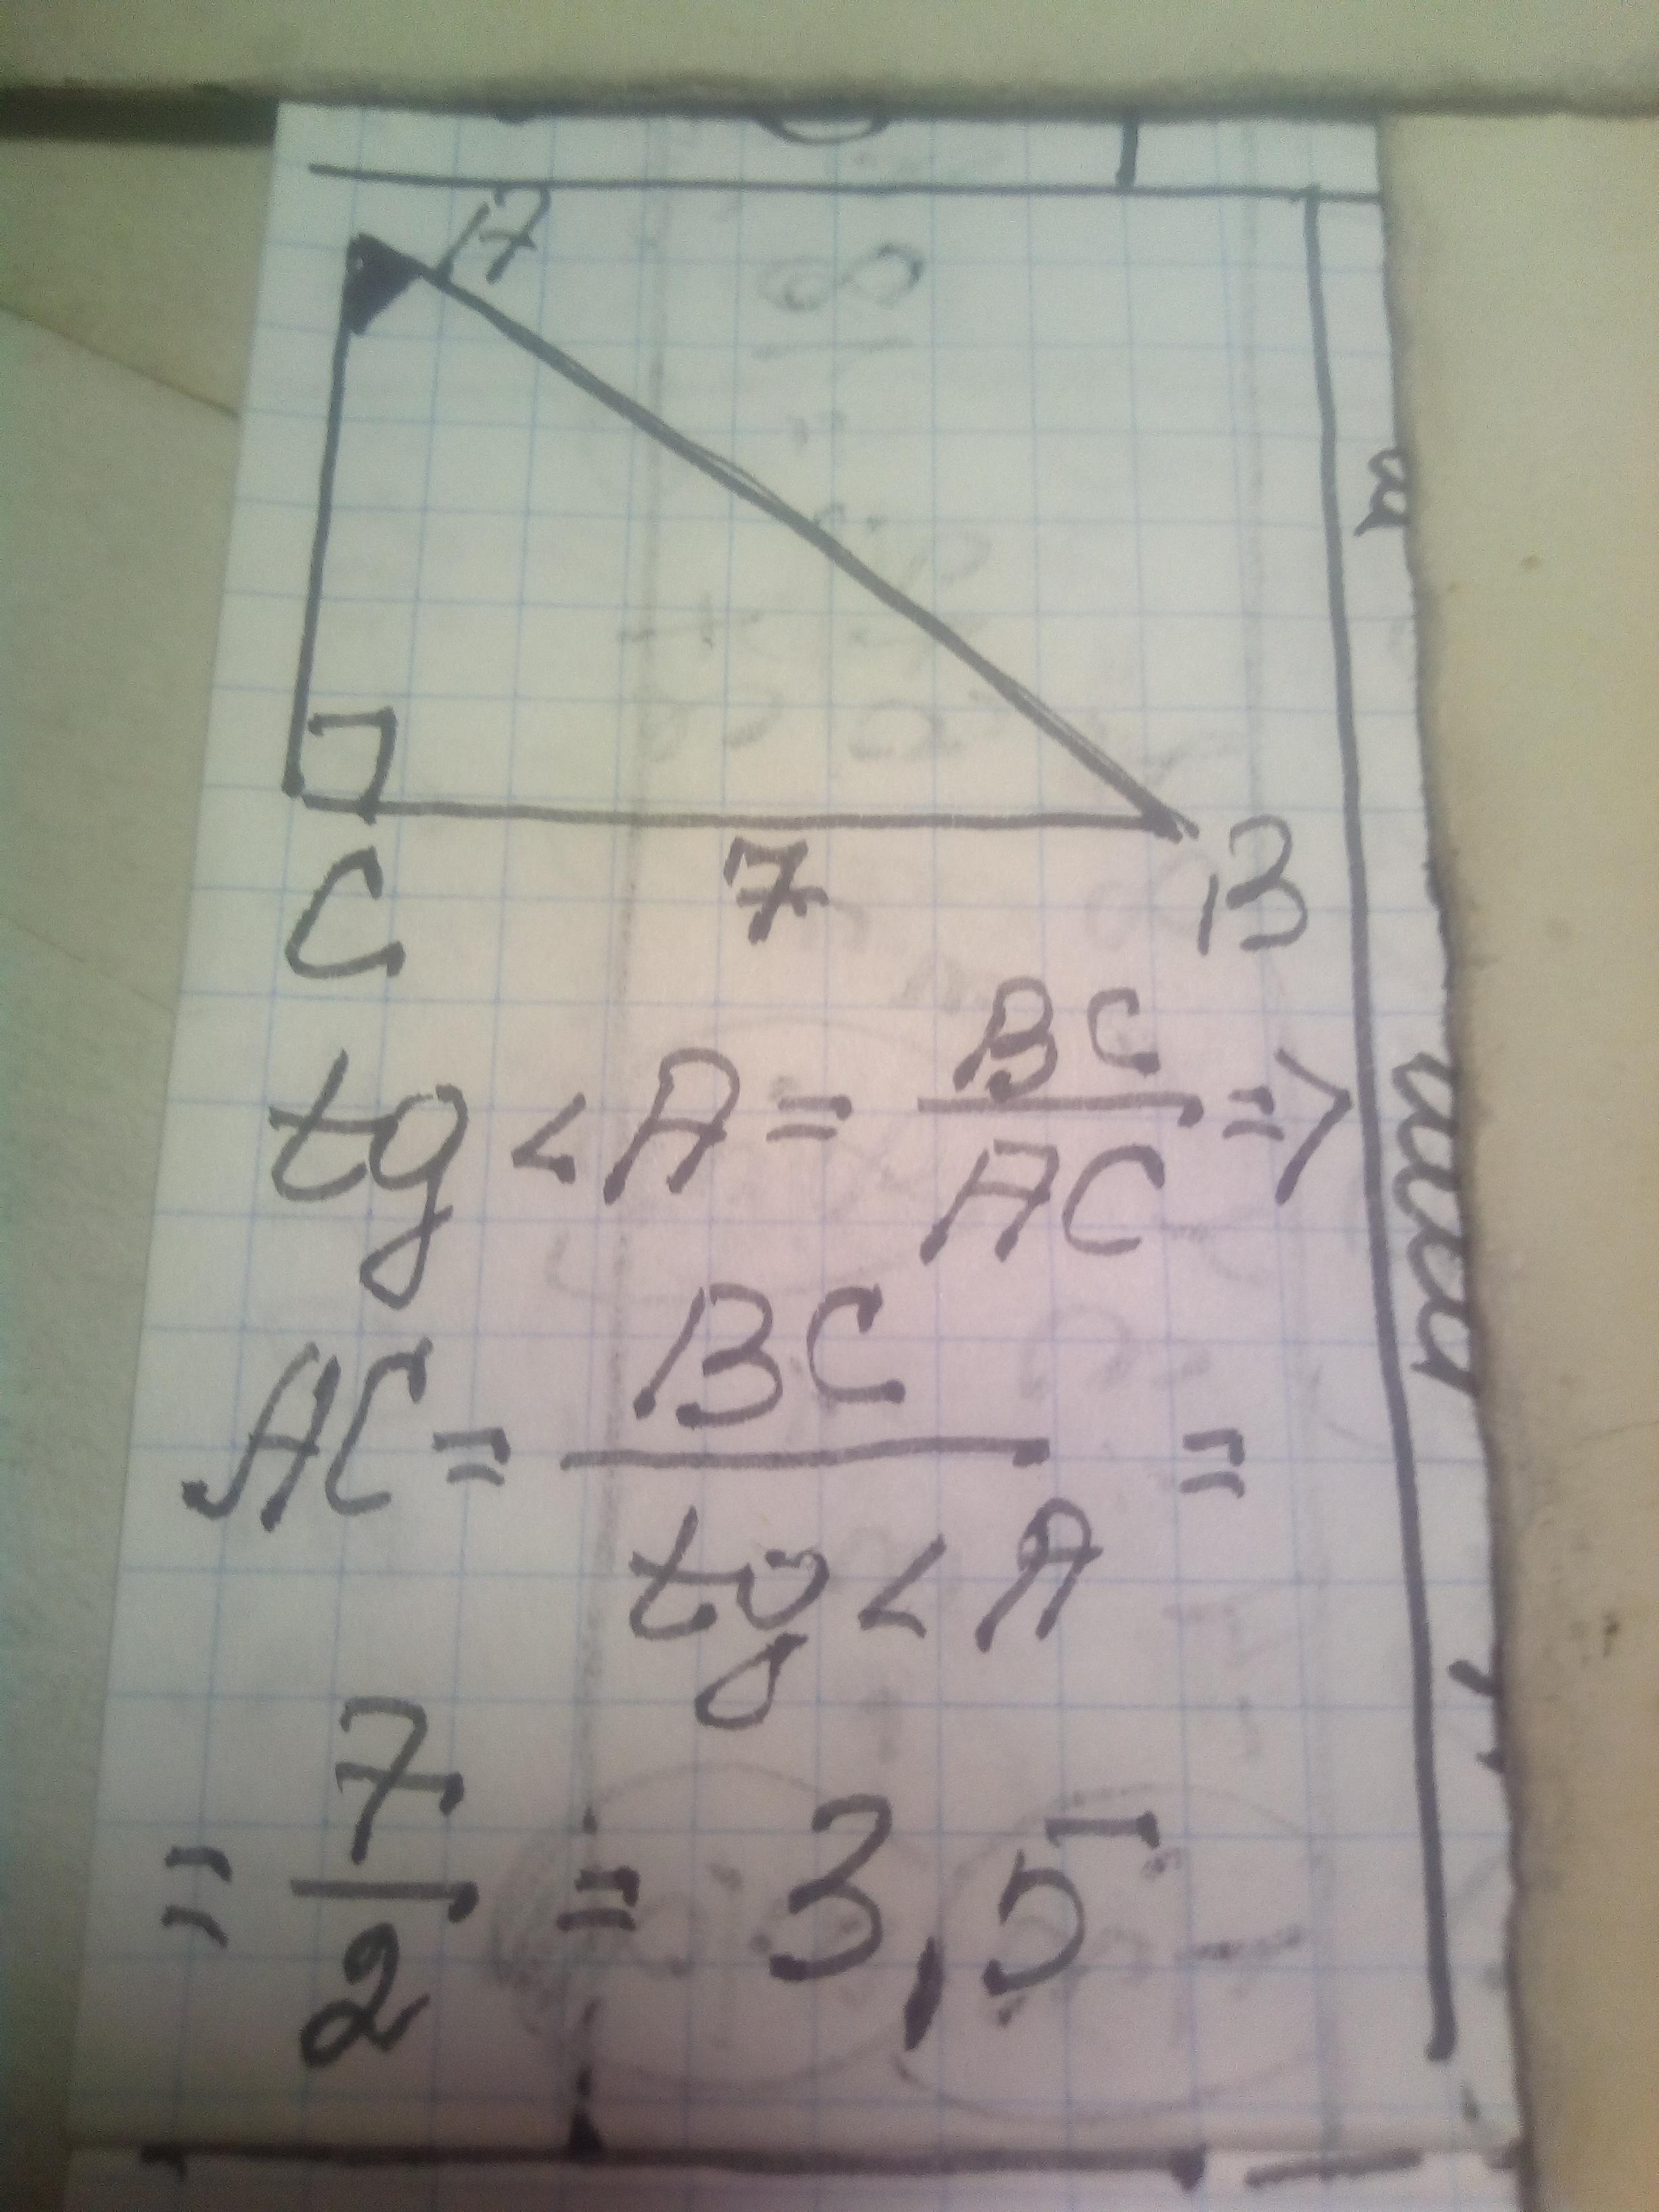 A
C 7 B
tg <A = BC/AC =>
AC = BC/tg <A =
= 7/2 = 3,5